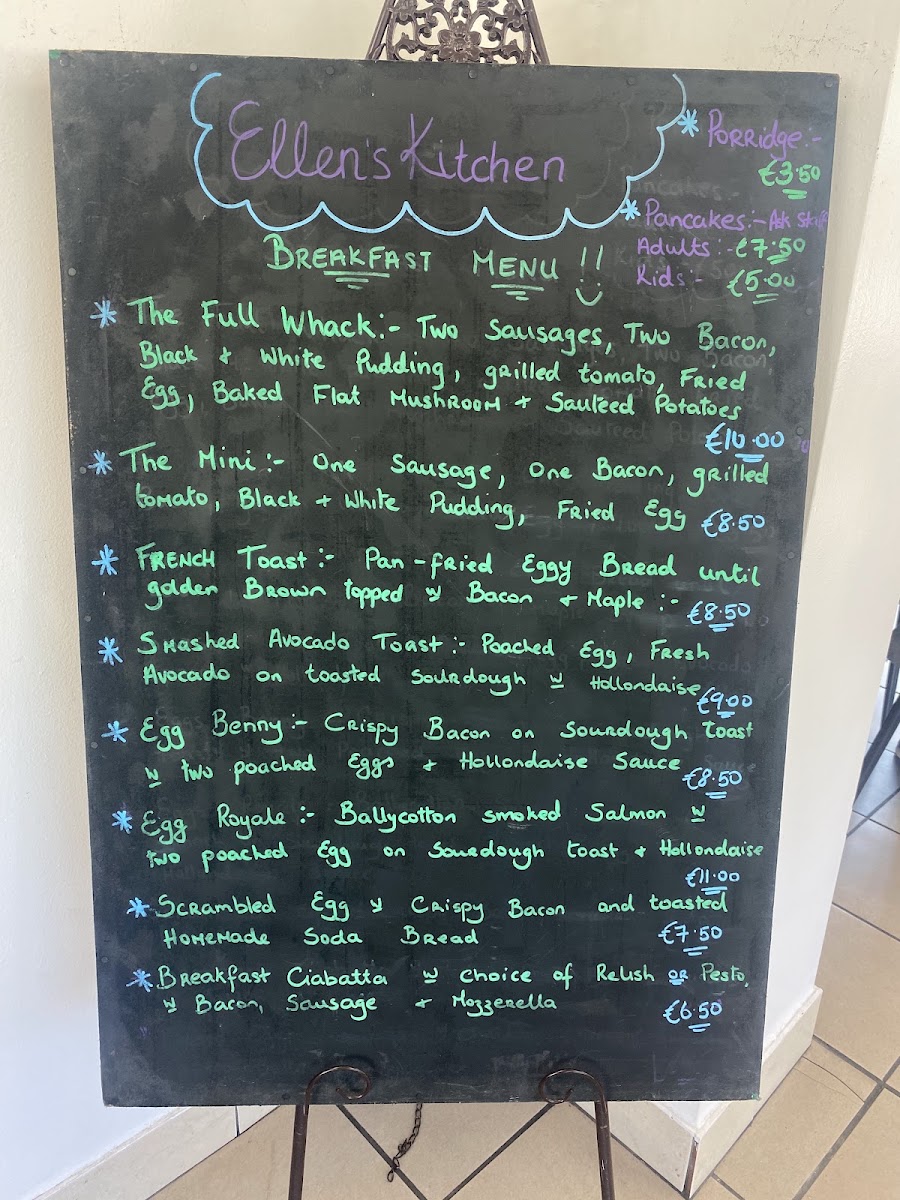 Ellen's Kitchen
* Porridge:-
€3.50
* Pancakes:- Ask staff
Adults:- €7.50
Kids:- €5.00
Breakfast Menu !!
* The Full Whack:- Two Sausages, Two Bacon,
Black + White Pudding, grilled tomato, Fried
Egg, Baked Flat Mushroom + Sauteed Potatoes
€10.00
* The Mini:- One Sausage, One Bacon, grilled
tomato, Black + White Pudding, Fried Egg €8.50
* French Toast:- Pan-fried Eggy Bread until
golden Brown topped w Bacon + Maple:-
€8.50
* Smashed Avocado Toast:- Poached Egg, Fresh
Avocado on toasted Sourdough w Hollondaise
€9.00
* Egg Benny:- Crispy Bacon on Sourdough toast
w two poached Eggs + Hollondaise Sauce
€8.50
* Egg Royale:- Ballycotton smoked Salmon w
two poached Egg on Sourdough toast + Hollondaise
€11.00
* Scrambled Egg w Crispy Bacon and toasted
Homemade Soda Bread €7.50
* Breakfast Ciabatta w choice of Relish or Pesto,
w Bacon, Sausage + Mozzerella €6.50